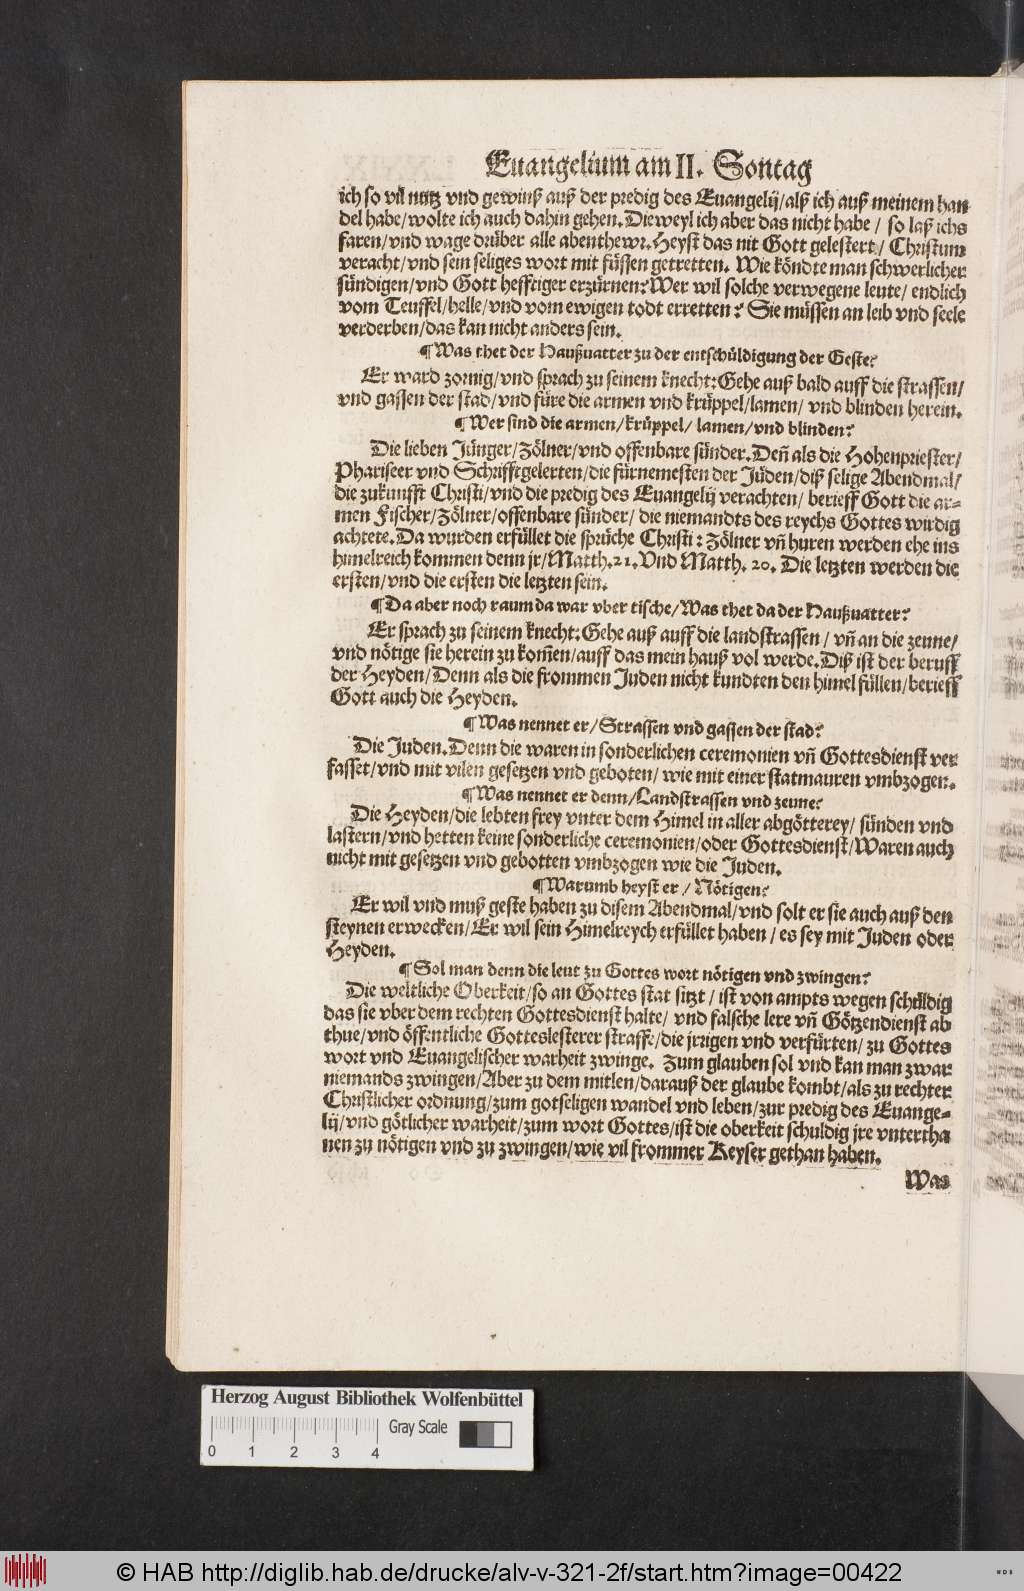 Euangelium am II. Sontag
ich so vil nutz vnd gewinß auß der predig des Euangelij/alß ich auß meinem han
del habe/wolte ich auch dahin gehen. Dieweyl ich aber das nicht habe / so laß ichs
faren/vnd wage drüber alle abenthewr. Heyst das nit Gott gelestert/ Christum
veracht/vnd sein seliges wort mit füssen getretten. Wie köndte man schwerlicher
sündigen/vnd Gott hefftiger erzürnen? Wer wil solche verwegene leute/ endlich
vom Teuffel/helle/vnd vom ewigen todt erretten? Sie müssen an leib vnd seele
verderben/das kan nicht anders sein.
¶ Was thet der Haußuatter zu der entschüldigung der Geste?
Er ward zornig/vnd sprach zu seinem knecht: Gehe auß bald auff die strassen/
vnd gassen der stad/vnd füre die armen vnd krüppel/lamen/ vnd blinden herein.
¶ Wer sind die armen/krüppel/ lamen/vnd blinden?
Die lieben Jünger/Zölner/vnd offenbare sünder. Deñ als die Hohenpriester/
Phariseer vnd Schrifftgelerten/die fürnemesten der Jüden/diß selige Abendmal/
die zukunfft Christi/vnd die predig des Euangelij verachten/ berieff Gott die ar=
men Fischer/Zölner/offenbare sünder/ die niemandts des reychs Gottes wirdig
achtete. Da wurden erfüllet die sprüche Christi: Zölner vñ huren werden ehe ins
himelreich kommen denn jr/Matth. 21. Vnd Matth. 20. Die letzten werden die
ersten/vnd die ersten die letzten sein.
¶ Da aber noch raum da war vber tische/Was thet da der Haußuatter?
Er sprach zu seinem knecht: Gehe auß auff die landstrassen/ vñ an die zeune/
vnd nötige sie herein zu kom̃en/auff das mein hauß vol werde. Diß ist der beruff
der Heyden/Denn als die frommen Juden nicht kundten den himel füllen/berieff
Gott auch die Heyden.
¶ Was nennet er/Strassen vnd gassen der stad?
Die Juden. Denn die waren in sonderlichen ceremonien vñ Gottesdienst ver
fasset/vnd mit vilen gesetzen vnd geboten/ wie mit einer statmauren vmbzogen.
¶ Was nennet er denn/Landstrassen vnd zeune?
Die Heyden/die lebten frey vnter dem Himel in aller abgötterey/ sünden vnd
lastern/vnd hetten keine sonderliche ceremonien/oder Gottesdienst/Waren auch
nicht mit gesetzen vnd gebotten vmbzogen wie die Juden.
¶ Warumb heyst er/ Nötigen?
Er wil vnd muß geste haben zu disem Abendmal/vnd solt er sie auch auß den
steynen erwecken/Er wil sein Himelreych erfüllet haben/ es sey mit Juden oder
Heyden.
¶ Sol man denn die leut zu Gottes wort nötigen vnd zwingen?
Die weltliche Oberkeit/so an Gottes stat sitzt/ ist von ampts wegen schüldig
das sie vber dem rechten Gottesdienst halte/ vnd falsche lere vñ Götzendienst ab
thue/vnd öffentliche Gotteslesterer straffe/die jrrigen vnd verfürten/ zu Gottes
wort vnd Euangelischer warheit zwinge. Zum glauben sol vnd kan man zwar
niemands zwingen/Aber zu dem mitlen/darauß der glaube kombt/als zu rechter
Christlicher ordnung/zum gotseligen wandel vnd leben/zur predig des Euange=
lij/vnd götlicher warheit/zum wort Gottes/ist die oberkeit schuldig jre vntertha
nen zu nötigen vnd zu zwingen/wie vil frommer Keyser gethan haben.
Was
Herzog August Bibliothek Wolfenbüttel
Gray Scale
0 1 2 3 4
© HAB http://diglib.hab.de/drucke/alv-v-321-2f/start.htm?image=00422